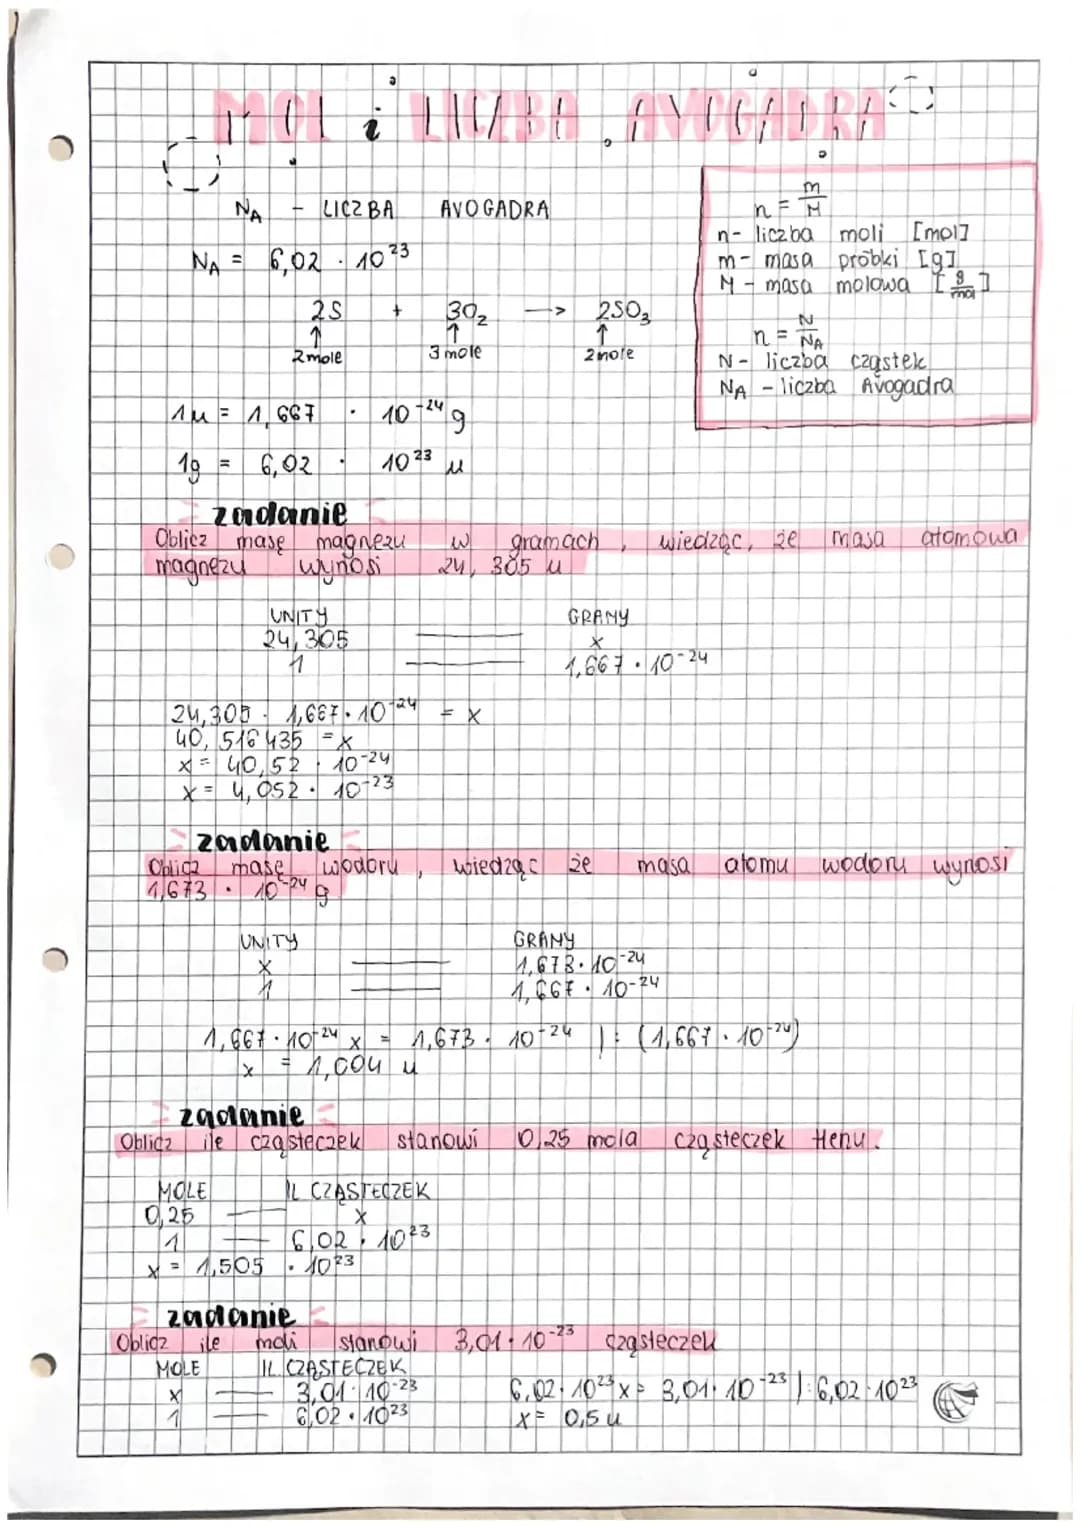 MOL i LICZBA AVOGADRA
NA - LICZBA AVOGADRA
NA = 6,02 · 10²³
2S + 3O₂ -> 2SO₃
↑ ↑ ↑
2mole 3 mole 2mole
1u = 1,667 · 10⁻²⁴ g
1g = 6,02 · 10²³ u
n = m/M
n- liczba moli [mol]
m- masa próbki [g]
M - masa molowa [g/mol]
n = N/NA
N- liczba cząstek
NA - liczba Avogadra
zadanie
Oblicz masę magnezu w gramach, wiedząc, że masa atomowa
magnezu wynosi 24,305 u
UNITY GRAMY
24,305 —— x
1 —— 1,667 · 10⁻²⁴
24,305 · 1,667 · 10⁻²⁴ = x
40,516435 = x
x = 40,52 · 10⁻²⁴
x = 4,052 · 10⁻²³
zadanie
Oblicz masę wodoru, wiedząc że masa atomu wodoru wynosi
1,673 · 10⁻²⁴ g
UNITY GRAMY
x —— 1,673 · 10⁻²⁴
1 —— 1,667 · 10⁻²⁴
1,667 · 10⁻²⁴ x = 1,673 · 10⁻²⁴ | : (1,667 · 10⁻²⁴)
x = 1,004 u
zadanie
Oblicz ile cząsteczek stanowi 0,25 mola cząsteczek tlenu.
MOLE IL CZĄSTECZEK
0,25 —— x
1 —— 6,02 · 10²³
x = 1,505 · 10²³
zadanie
Oblicz ile moli stanowi 3,01 · 10⁻²³ cząsteczek
MOLE IL. CZĄSTECZEK
x —— 3,01 · 10⁻²³
1 —— 6,02 · 10²³
6,02 · 10²³ x = 3,01 · 10⁻²³ | : 6,02 · 10²³
x = 0,5 u